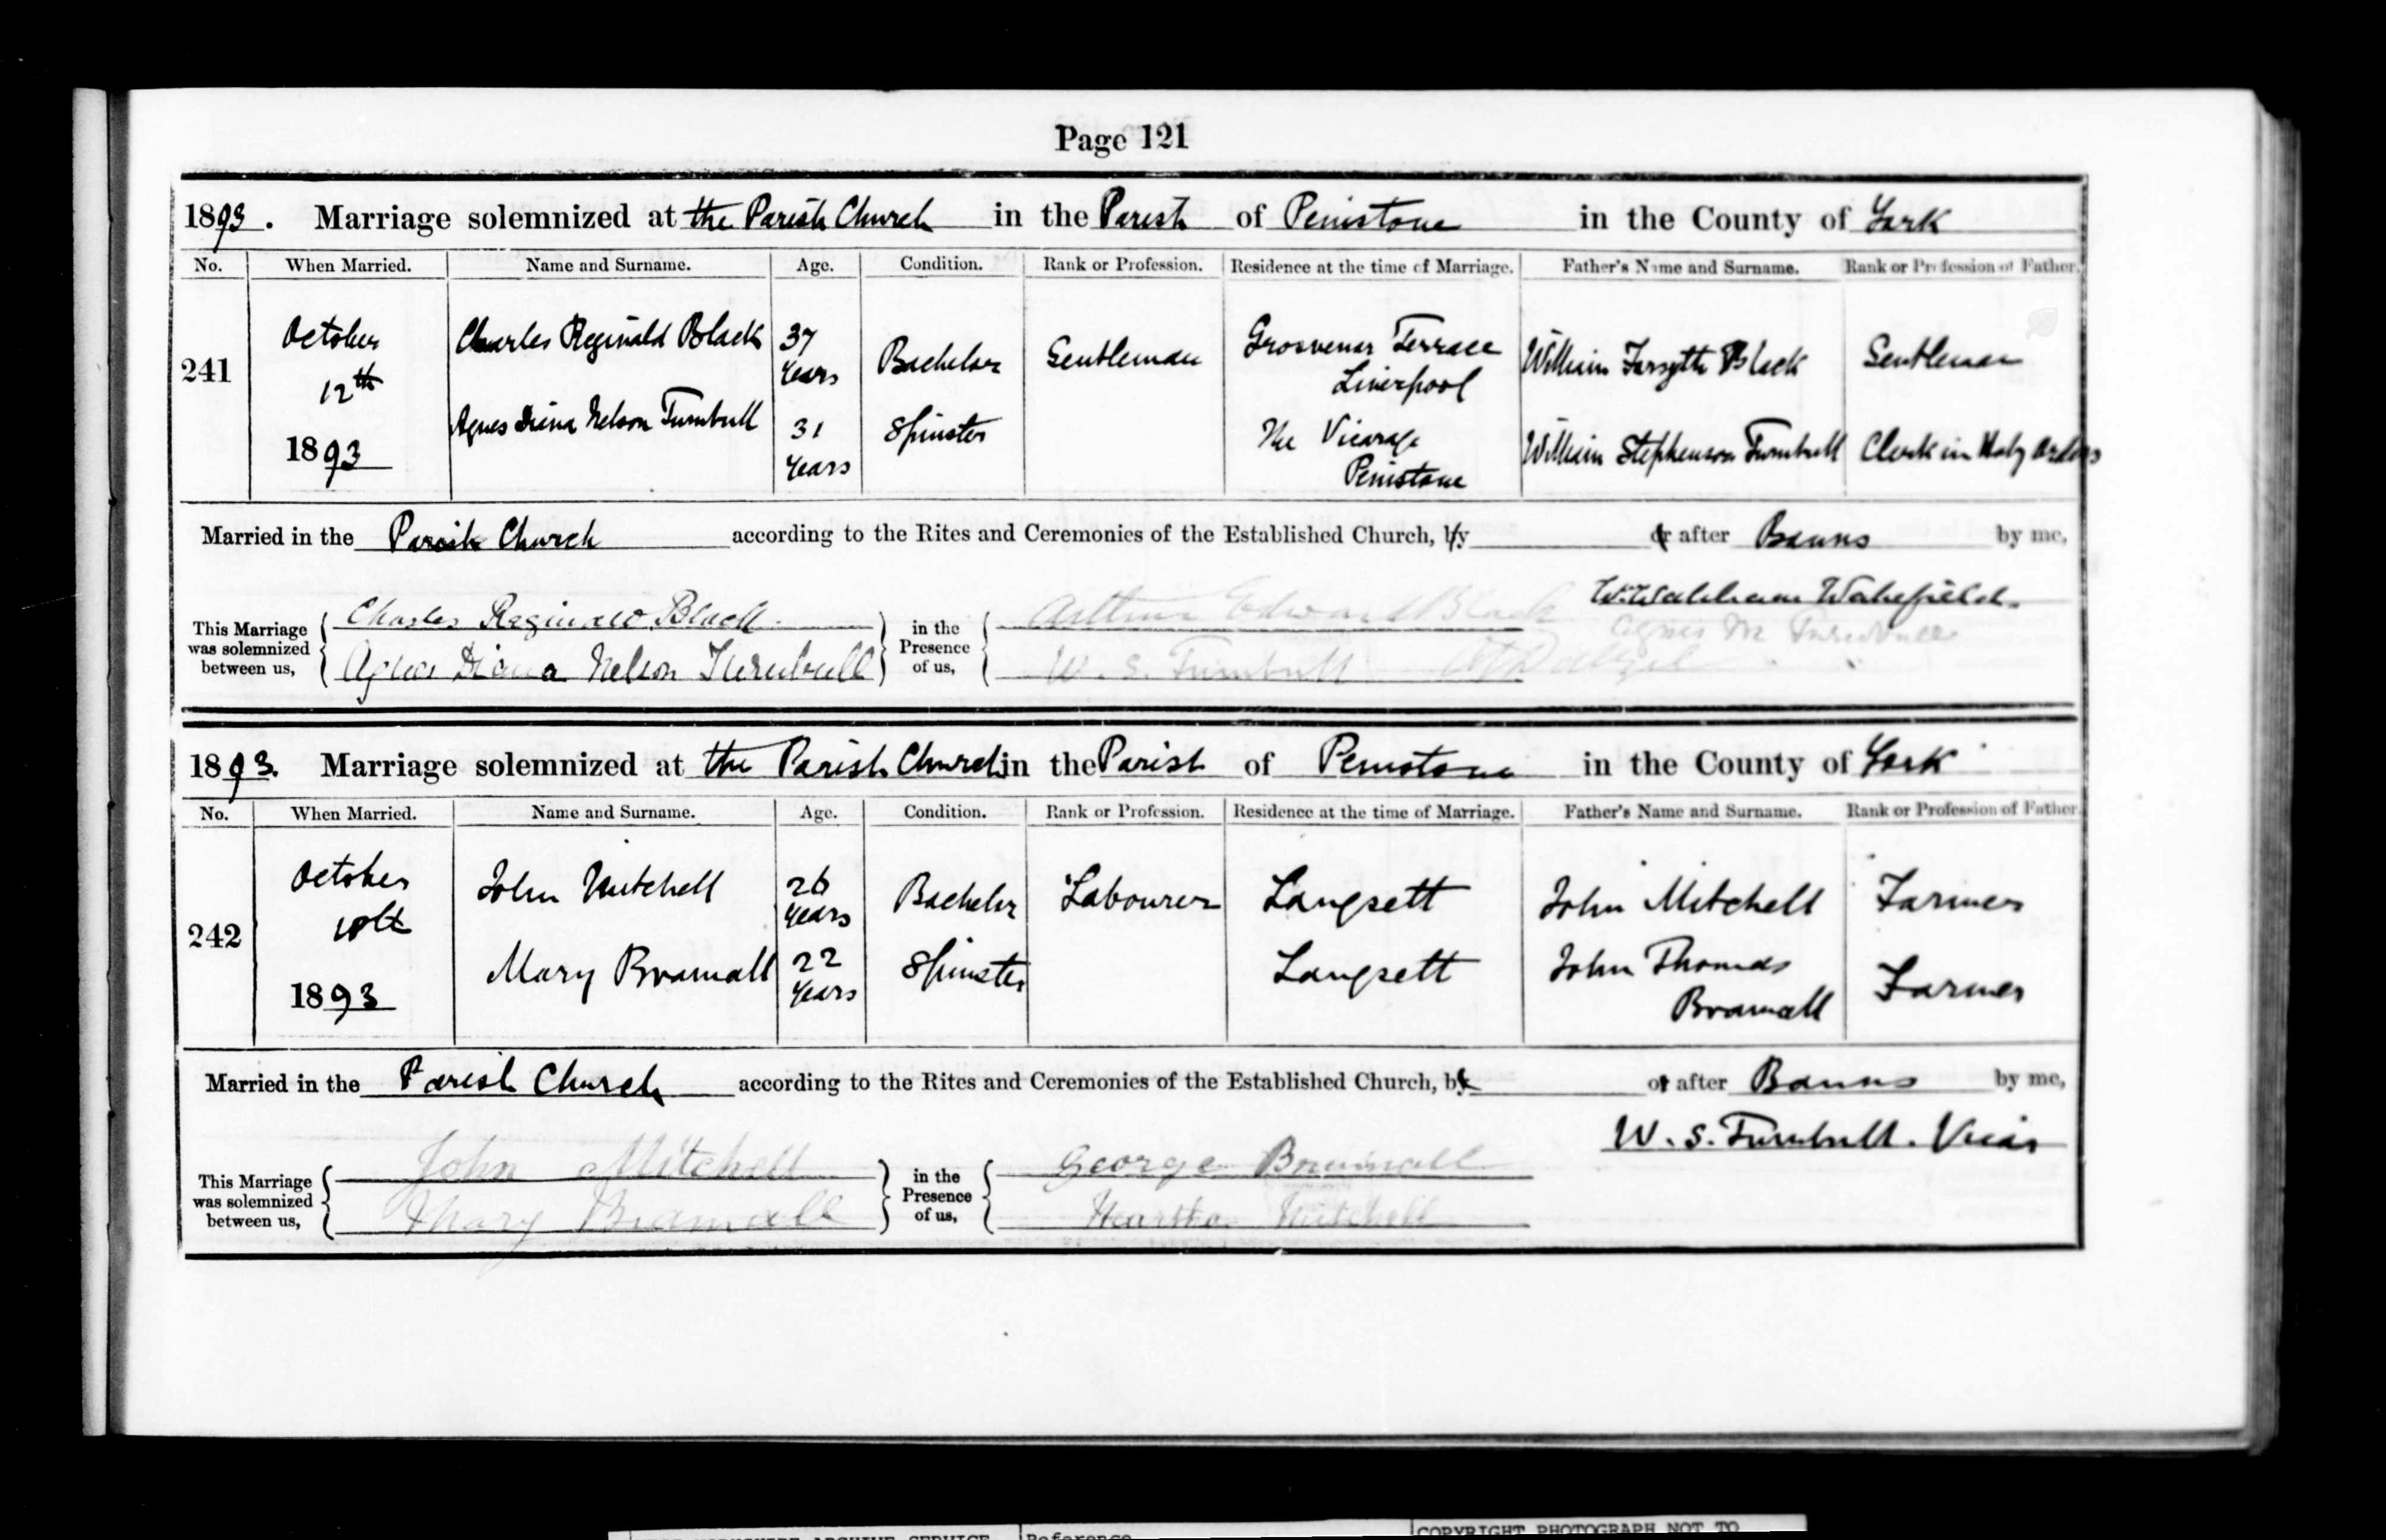 Page 121
1893. Marriage solemnized at the Parish Church in the Parish of Penistone in the County of York
No. When Married. Name and Surname. Age. Condition. Rank or Profession. Residence at the time of Marriage. Father's Name and Surname. Rank or Profession of Father.
241 October 12th 1893 Charles Reginald Black 37 Years Bachelor Gentleman Grosvenor Terrace Liverpool William Forsyth Black Gentleman
Agnes Diana Nelson Turnbull 31 Years Spinster The Vicarage Penistone William Stephenson Turnbull Clerk in Holy Orders
Married in the Parish Church according to the Rites and Ceremonies of the Established Church, by or after Banns by me,
Wakefield
This Marriage was solemnized between us, Charles Reginald Black in the Presence of us, Arthur Edward Black Agnes M Turnbull
Agnes Diana Nelson Turnbull W. S. Turnbull
1893. Marriage solemnized at the Parish Church in the Parish of Penistone in the County of York
No. When Married. Name and Surname. Age. Condition. Rank or Profession. Residence at the time of Marriage. Father's Name and Surname. Rank or Profession of Father.
242 October 1893 John Mitchell 26 Years Bachelor Labourer Langsett John Mitchell Farmer
Mary Bramall 22 Years Spinster Langsett John Thomas Bramall Farmer
Married in the Parish Church according to the Rites and Ceremonies of the Established Church, by or after Banns by me,
W. S. Turnbull. Vicar
This Marriage was solemnized between us, John Mitchell in the Presence of us, George Bramall
Mary Bramall Mitchell
Reference
COPYRIGHT PHOTOGRAPH NOT TO